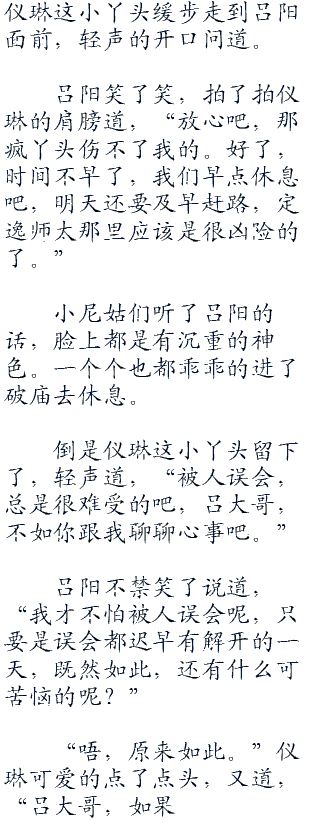 仪琳这小丫头缓步走到吕阳
面前，轻声的开口问道。
吕阳笑了笑，拍了拍仪
琳的肩膀道，“放心吧，那
疯丫头伤不了我的。好了，
时间不早了，我们早点休息
吧，明天还要及早赶路，定
逸师太那里应该是很凶险的
了。”
小尼姑们听了吕阳的
话，脸上都是有沉重的神
色。一个个也都乖乖的进了
破庙去休息。
倒是仪琳这小丫头留下
了，轻声道，“被人误会，
总是很难受的吧，吕大哥，
不如你跟我聊聊心事吧。”
吕阳不禁笑了说道，
“我才不怕被人误会呢，只
要是误会都迟早有解开的一
天，既然如此，还有什么可
苦恼的呢？”
“唔，原来如此。”仪
琳可爱的点了点头，又道，
“吕大哥，如果